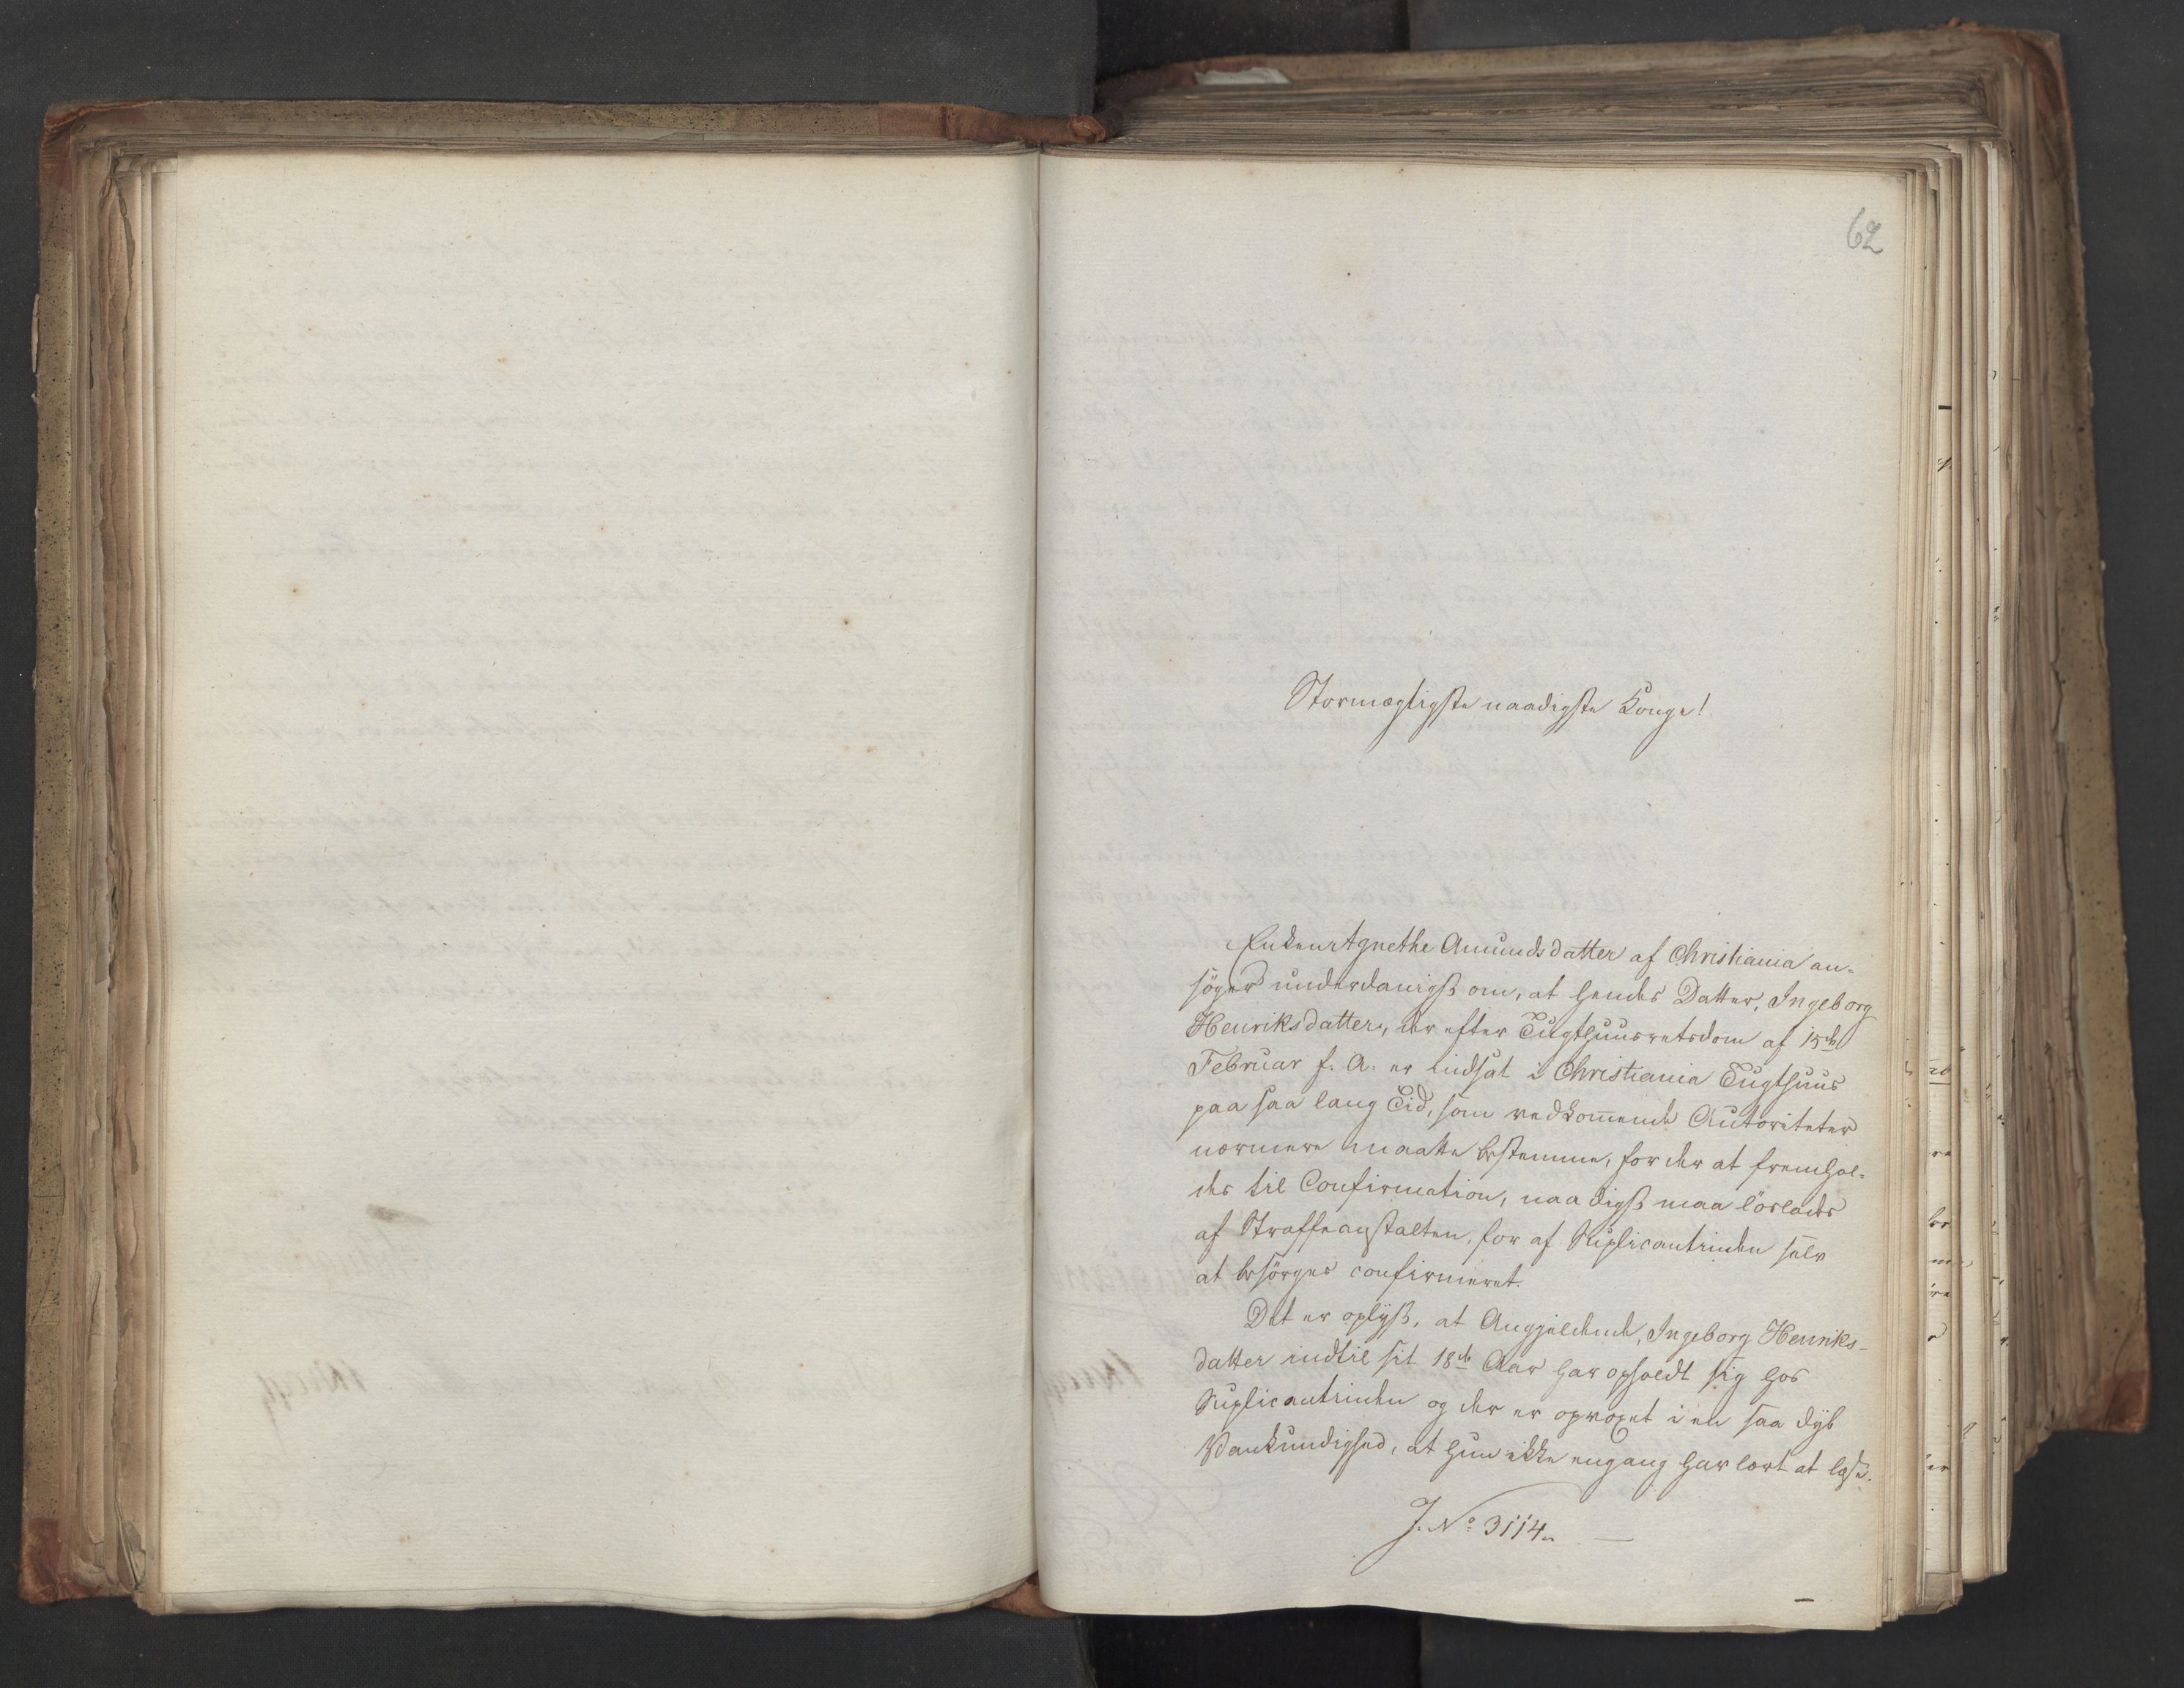 62
Stormægtigste naadigste Konge!
Enken Agnethe Amundsdatter af Christiania an-
søger underdanigst om, at hendes Datter, Ingeborg
Henriksdatter, der efter Tugthuusretsdom af 15de
Februar f. A. er indsat i Christiania Tugthuus
paa saa lang Tid, som vedkommende Autoriteter
nærmere maatte bestemme, for der at fremhol-
des til Confirmation, naadigst maa løslades
af Straffeanstalten, for af Suplicantinden selv
at besørges confirmeret.
Det er oplyst, at Angjeldende, Ingeborg Henriks-
datter indtil sit 18de Aar har opholdt sig hos
Suplicantinden og der er opvoxet i en saa dyb
Vankundighed, at hun ikke engang har lært at læse.
J. No 3114.